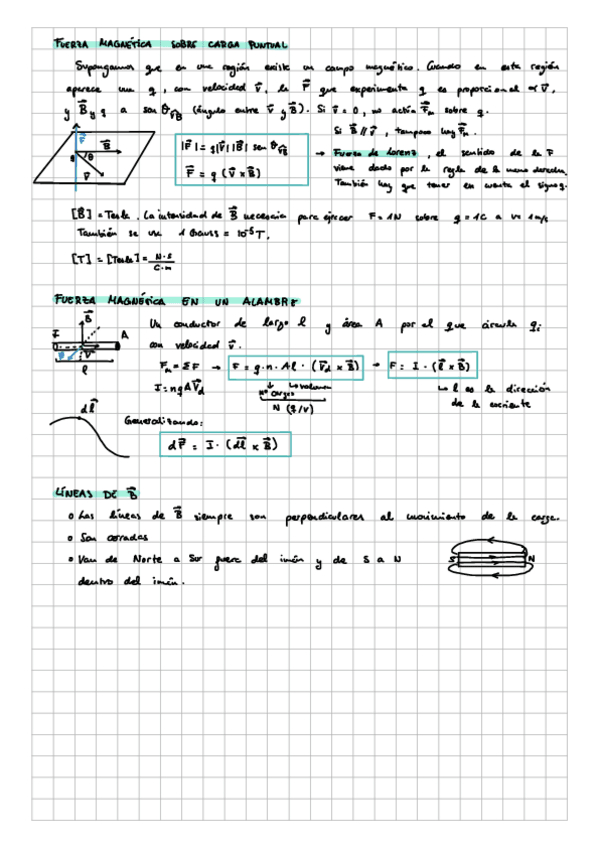 FUERZA MAGNÉTICA SOBRE CARGA PUNTUAL
Supongamos que en una región existe un campo magnético. Cuando en esta región
aparece una q, con velocidad v⃗, la F⃗ que experimenta q es proporcional α v⃗,
y B⃗ y q a sen θ_v⃗B⃗ (ángulo entre v⃗ y B⃗). Si v⃗ = 0, no actúa F⃗m sobre q.
Si B⃗ // v⃗, tampoco hay F⃗m.
F⃗ B⃗ q θ v⃗
|F⃗| = q|v⃗||B⃗| sen θ_v⃗B⃗
F⃗ = q (v⃗ × B⃗)
→ Fuerza de Lorenz, el sentido de la F
viene dado por la regla de la mano derecha.
También hay que tener en cuenta el signo q.
[B⃗] = Tesla. La intensidad de B⃗ necesaria para ejercer F = 1N sobre q = 1C a v = 1m/s
También se usa 1 Gauss = 10⁻⁵ T.
[T] = [Tesla] = N·s / C·m
FUERZA MAGNÉTICA EN UN ALAMBRE
B⃗ I A v⃗ l
Un conductor de largo l y área A por el que circula q;
con velocidad v⃗.
Fm = ΣF → F = q·n·Al·(v⃗d × B⃗) → F = I·(l⃗ × B⃗)
I = nqAv⃗d
↓ ↳ volumen
Nº cargas
N (q/v)
↳ l es la dirección
de la corriente
dl⃗
Generalizando:
dF⃗ = I·(dl⃗ × B⃗)
LÍNEAS DE B⃗
o Las líneas de B⃗ siempre son perpendiculares al movimiento de la carga.
o Son cerradas
o Van de Norte a Sur fuera del imán y de S a N
dentro del imán.
S N